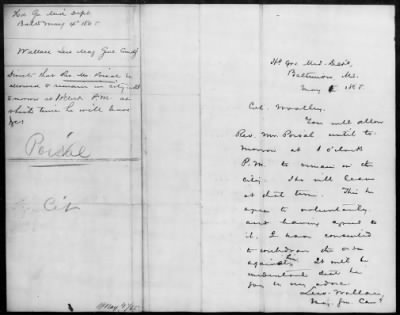 Hd Qr Mid Dept
Balto May 4th 1865
Wallace Lew Maj Genl Comdg
Directs that Rev Mr Poisal be
allowed to remain in city until
tomorrow at 1 o'clock P.M. at
which time he will leave
Poisal
Cit
May 4/65
Hd Qrs Mid. Dept.
Baltimore Md.
May 1865.
Col. Woolley.
You will allow
Rev. Mr. Poisal until to-
morrow at 1 o'clock
P.M. to remain in the
city. He will leave
at that time. This he
agrees to voluntarily
and having agreed to
it, I have consented
to withdraw the order
against him. It will be
understood that he
Lew. Wallace,
Maj. Gn. Com